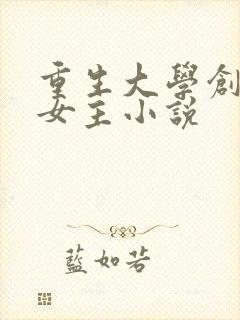 重生大學創
女主小說
藍如若